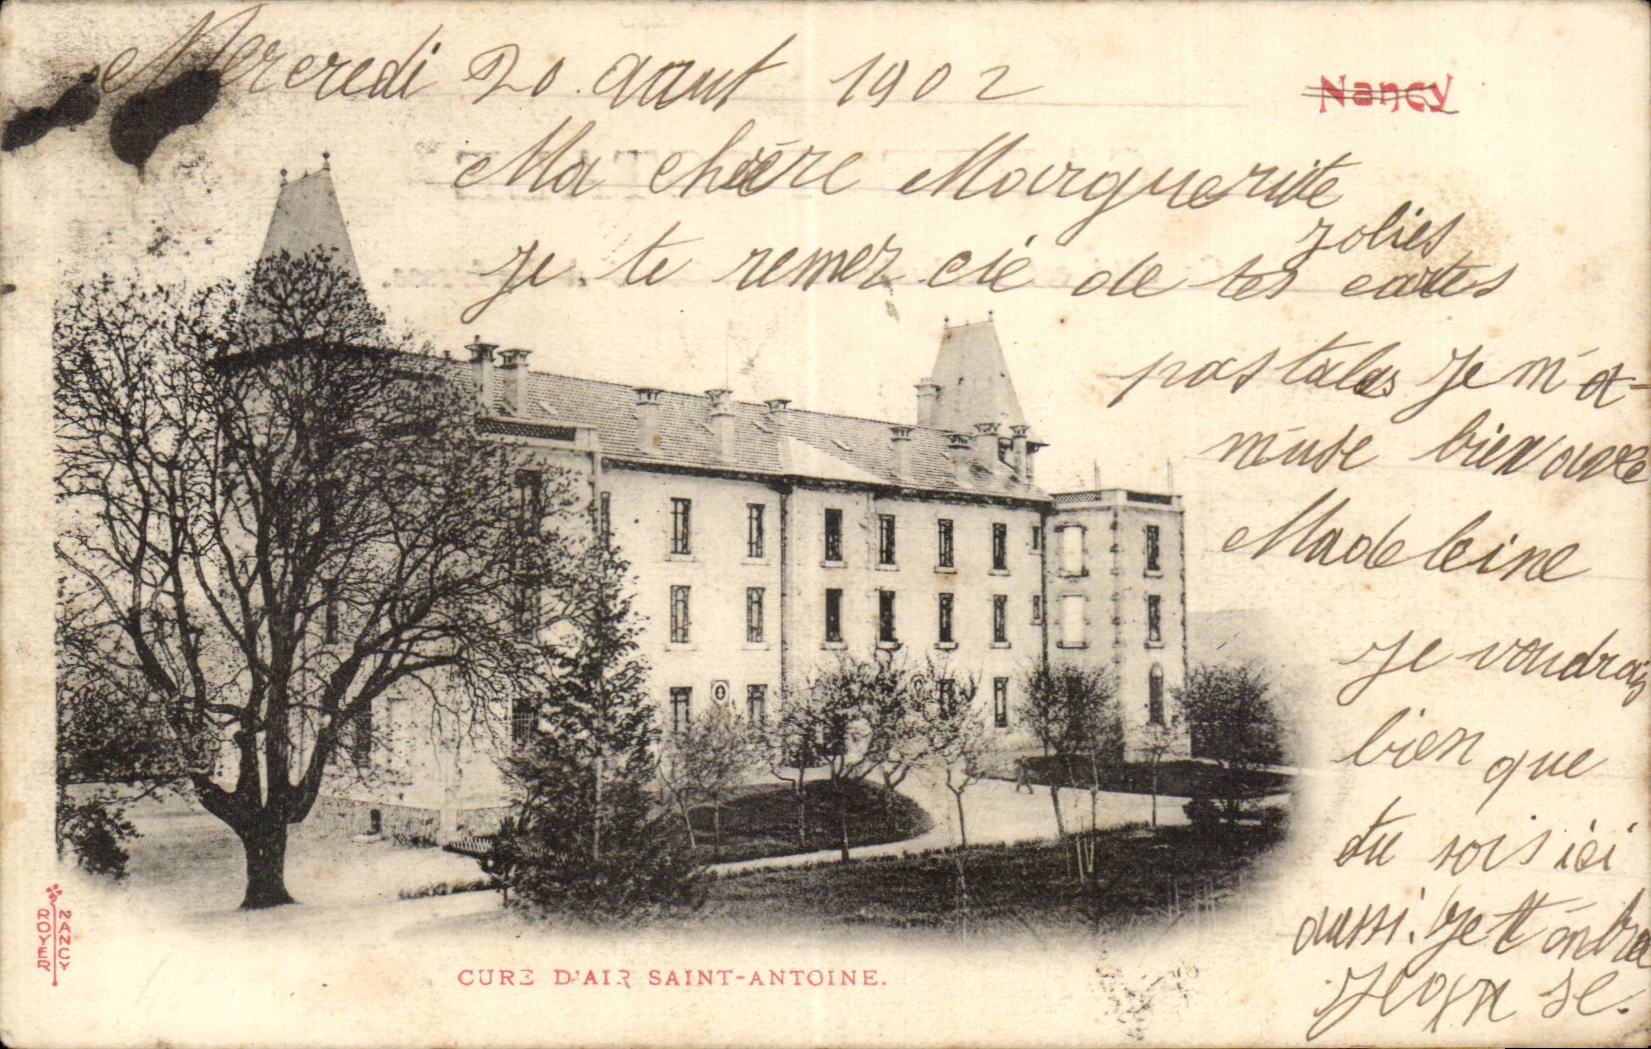 Mercredi 20 aout 1902
Nancy
Ma chère Marguerite
je te remercie de tes jolies cartes
postales Je m'a-
muse bien avec
Madeleine
Je voudrai
bien que
tu sois ici
aussi! Je
ROYER NANCY
CURE D'AIR SAINT-ANTOINE.